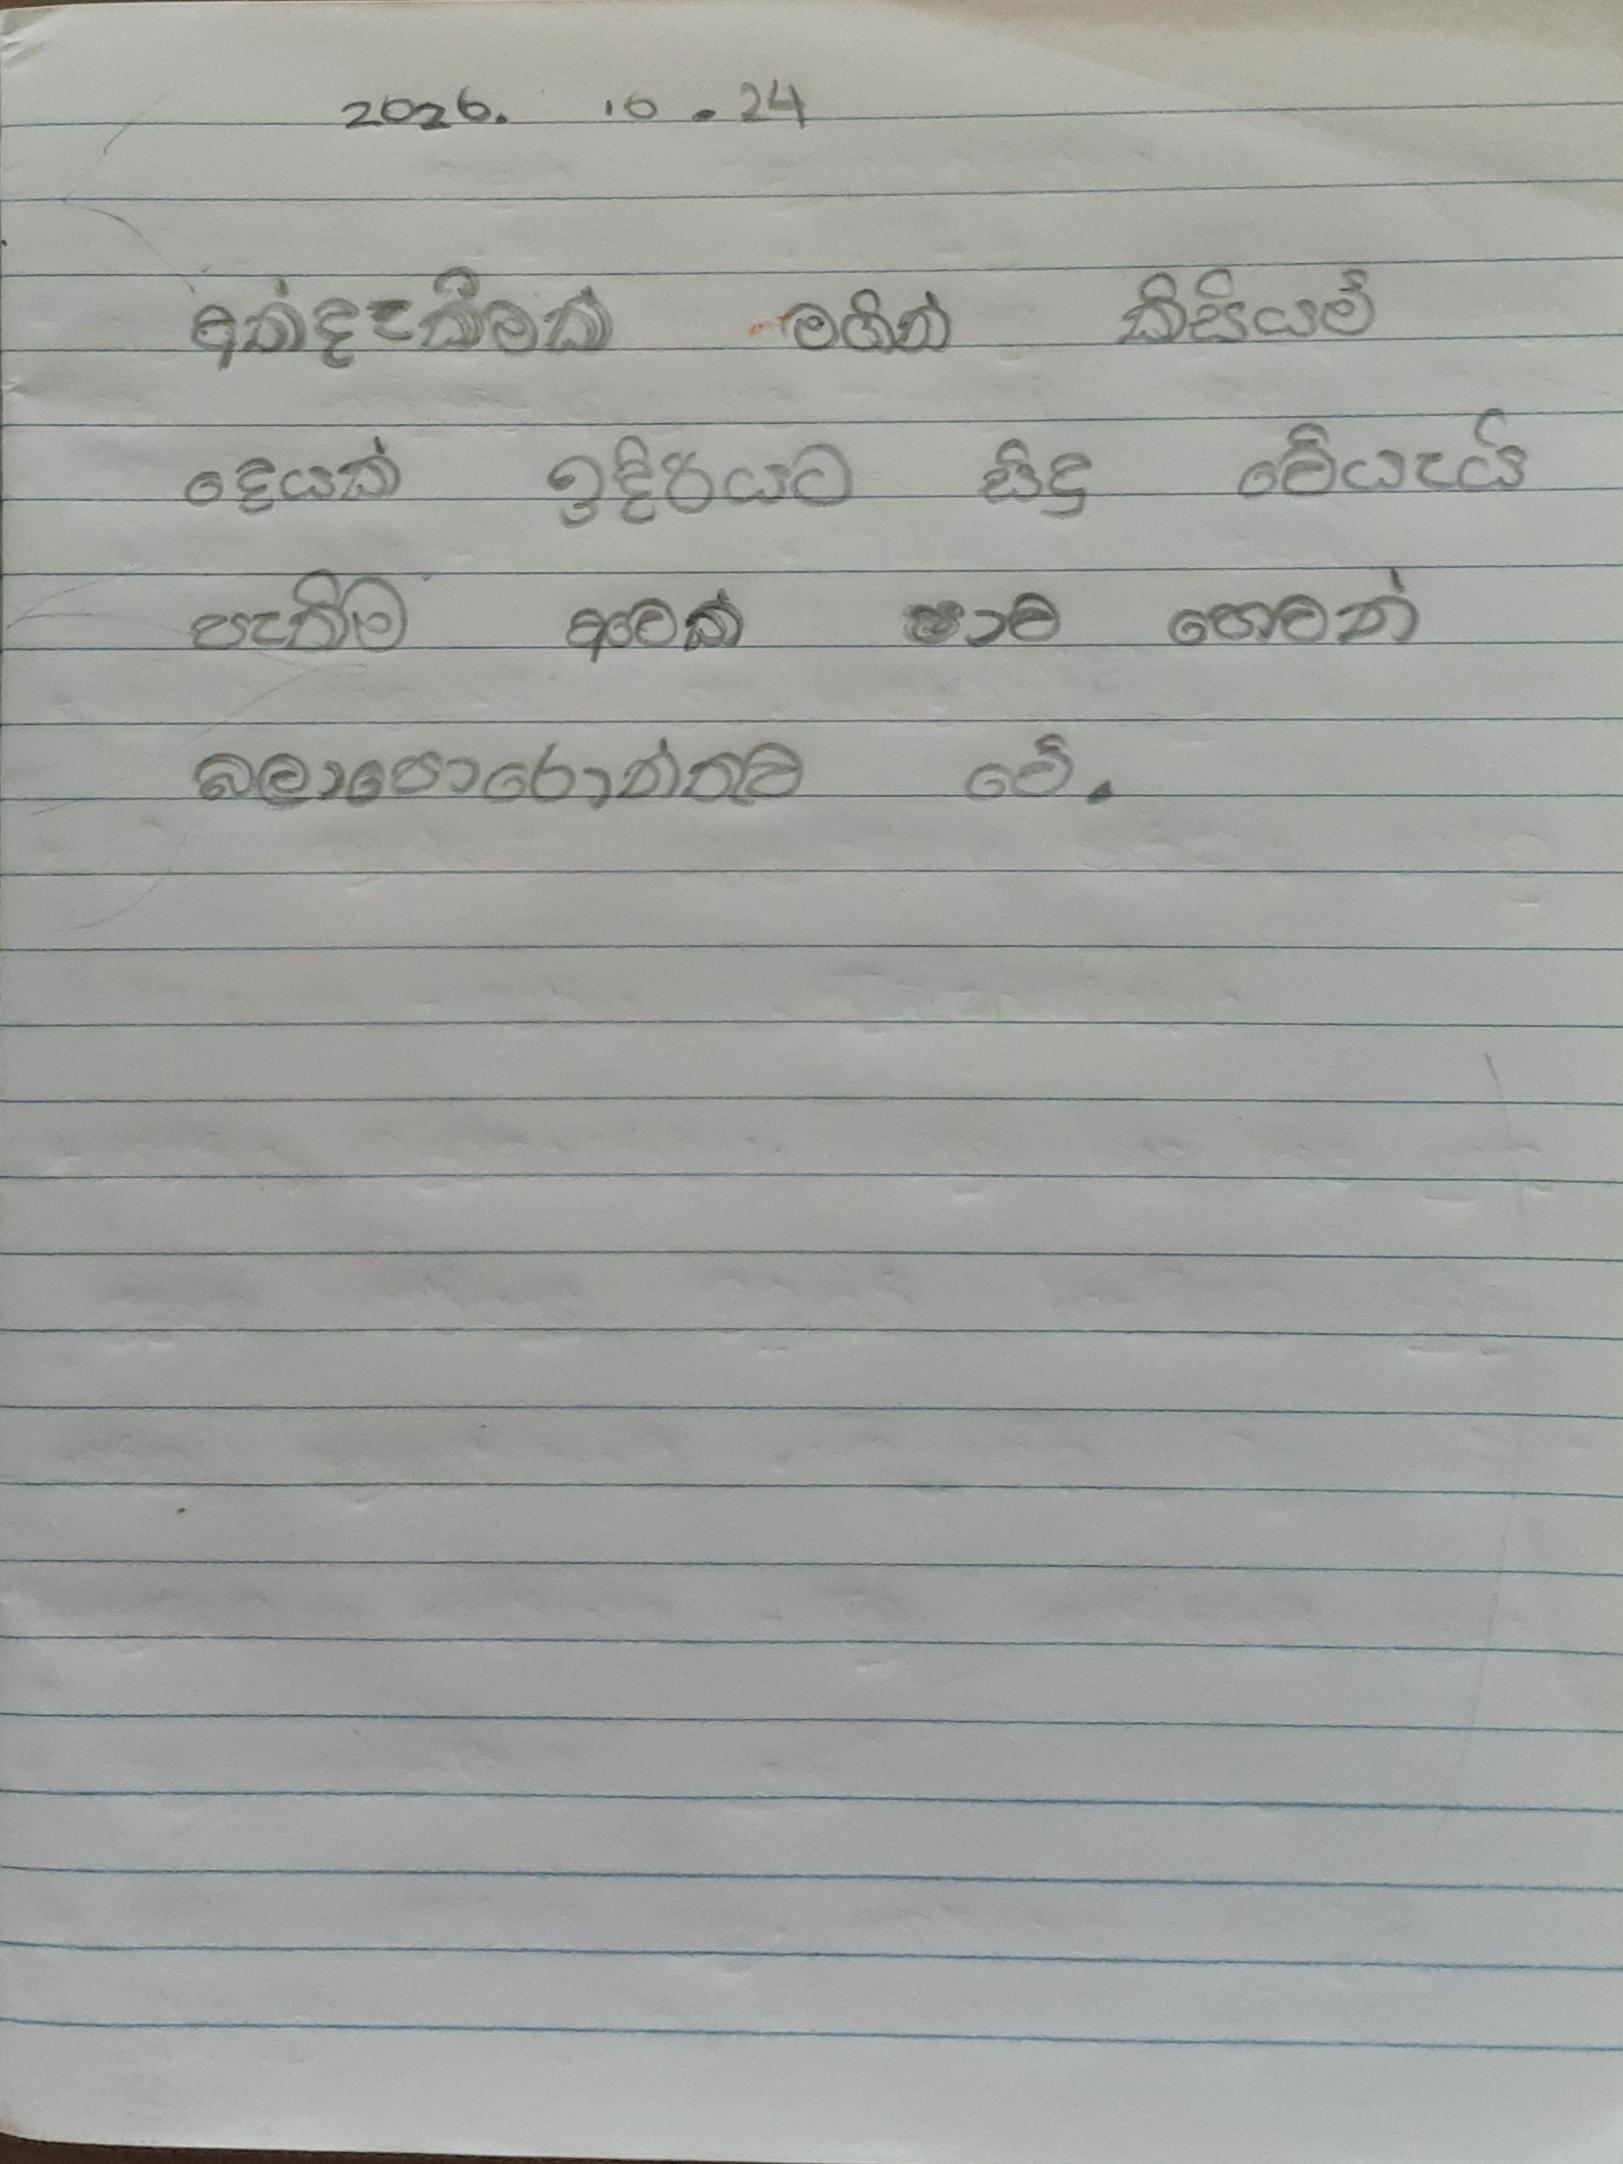 2026. 10. 24
අත්දැකීමක් මගින් කිසියම්
දෙයක් ඉදිරියට සිදු වේයැයි
පැතීම අටක් භාව හෙවත්
බලාපොරොත්තුව වේ.